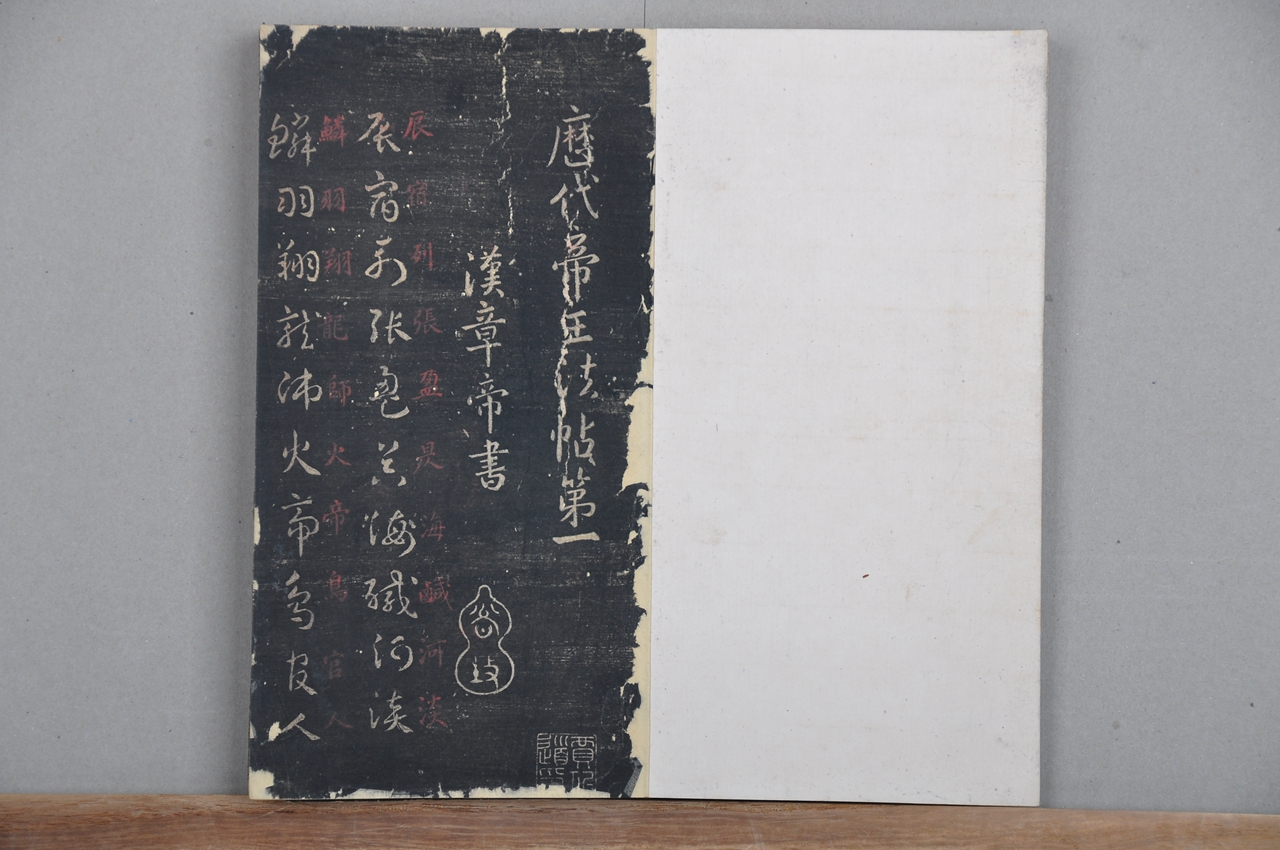 歷代帝王法帖第一
賈似道印
漢章帝書
辰宿列張盈昃海鹹河淡
辰宿列張盈昃海鹹河淡
鱗羽翔龍師火帝鳥官人
鱗羽翔龍師火帝鳥官人